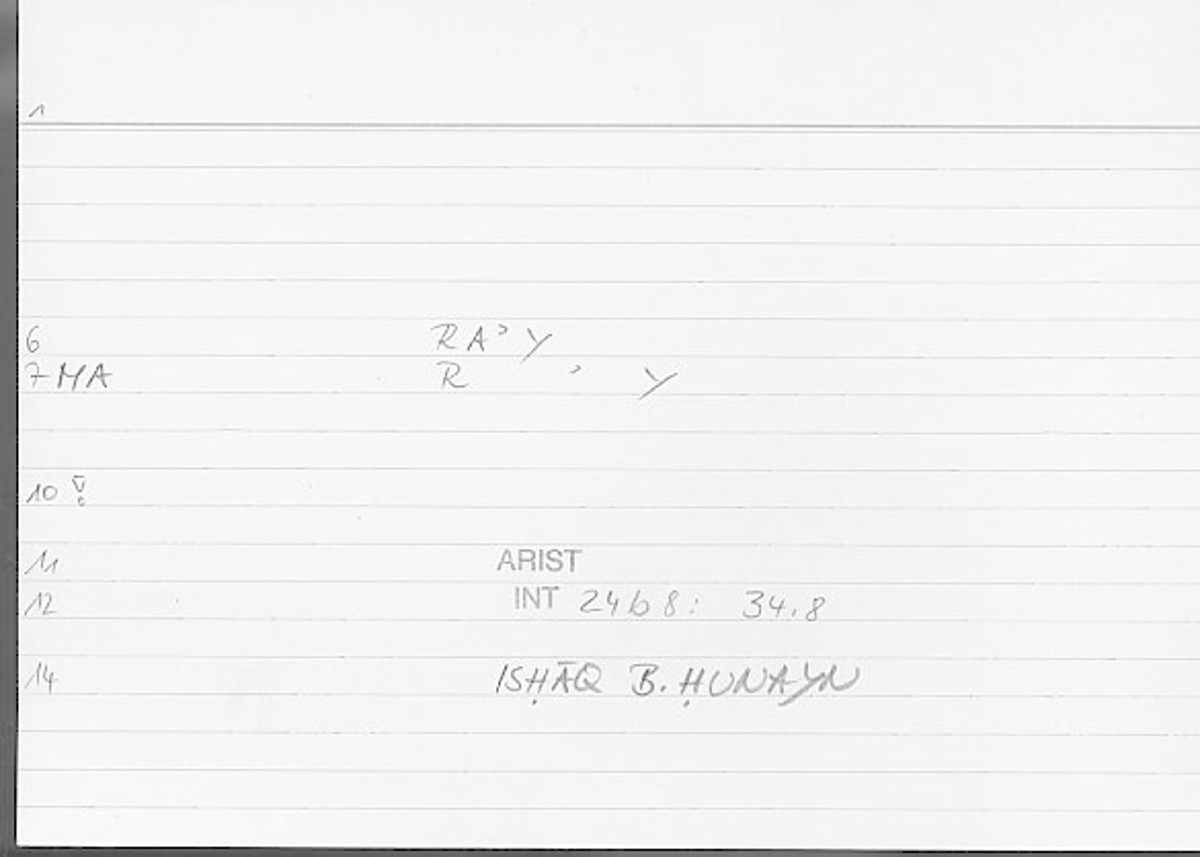 1
6 RAʾY
7 MA R ʾ Y
10
11 ARIST
12 INT 24b8: 34.8
14 ISḤĀQ B. ḤUNAYN